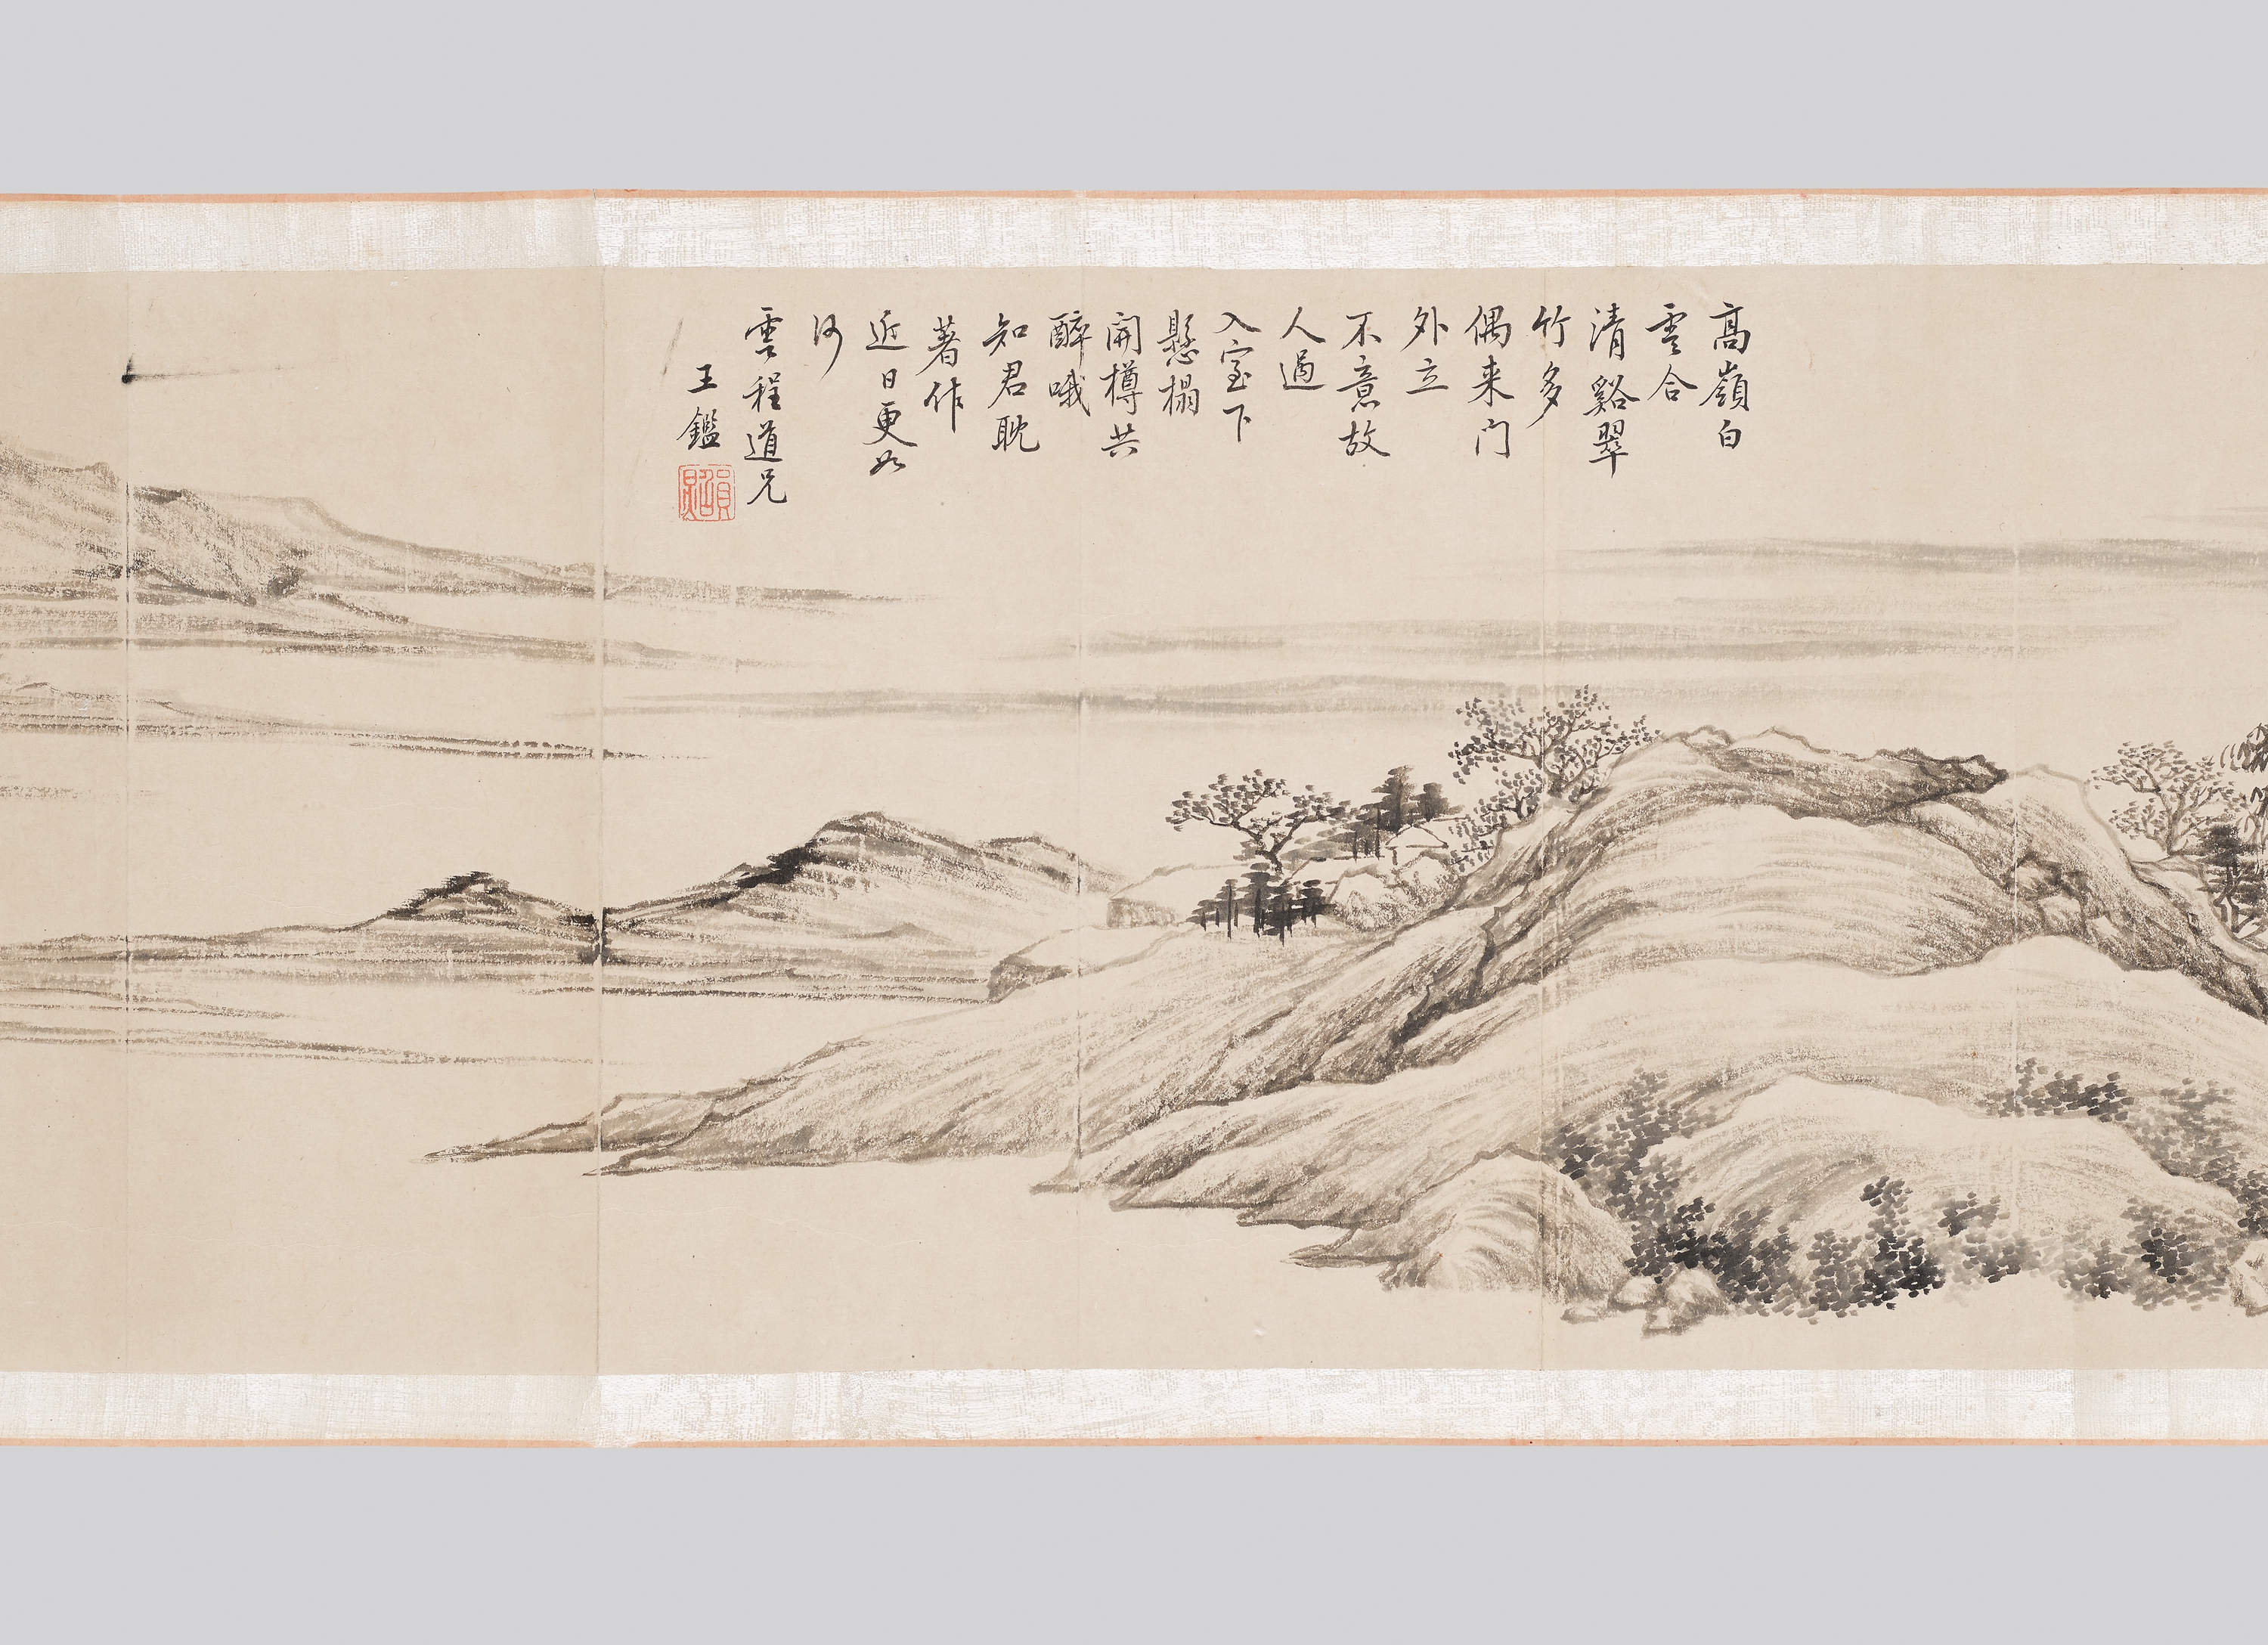 高嶺白
雲合
清谿翠
竹多
偶来门
外立
不意故
人過
入室下
懸榻
開樽共
醉哦
知君耽
著作
近日更如
何
雲程道兄
王鑑
員照